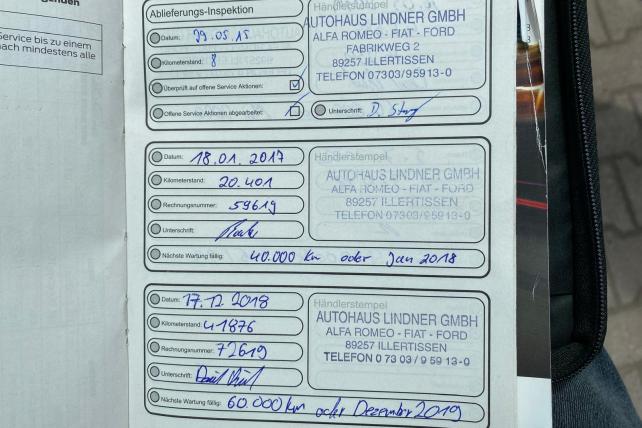 Service bis zu einem
nach mindestens alle
Ablieferungs-Inspektion
Datum: 29.05.15
Kilometerstand: 8
Überprüft auf offene Service Aktionen:
Offene Service Aktionen abgearbeitet:
Händlerstempel
AUTOHAUS LINDNER GMBH
ALFA ROMEO - FIAT - FORD
FABRIKWEG 2
89257 ILLERTISSEN
TELEFON 07303/95913-0
Unterschrift:
Datum: 18.01.2017
Kilometerstand: 20.401
Rechnungsnummer: 59619
Unterschrift:
Händlerstempel
AUTOHAUS LINDNER GMBH
ALFA ROMEO - FIAT - FORD
89257 ILLERTISSEN
TELEFON 07303/95913-0
Nächste Wartung fällig: 40.000 km oder Jan 2018
Datum: 17.12.2018
Kilometerstand: 41876
Rechnungsnummer: 72619
Unterschrift:
Händlerstempel
AUTOHAUS LINDNER GMBH
ALFA ROMEO - FIAT - FORD
89257 ILLERTISSEN
TELEFON 0 73 03 / 9 59 13-0
Nächste Wartung fällig: 60.000 km oder Dezember 2019